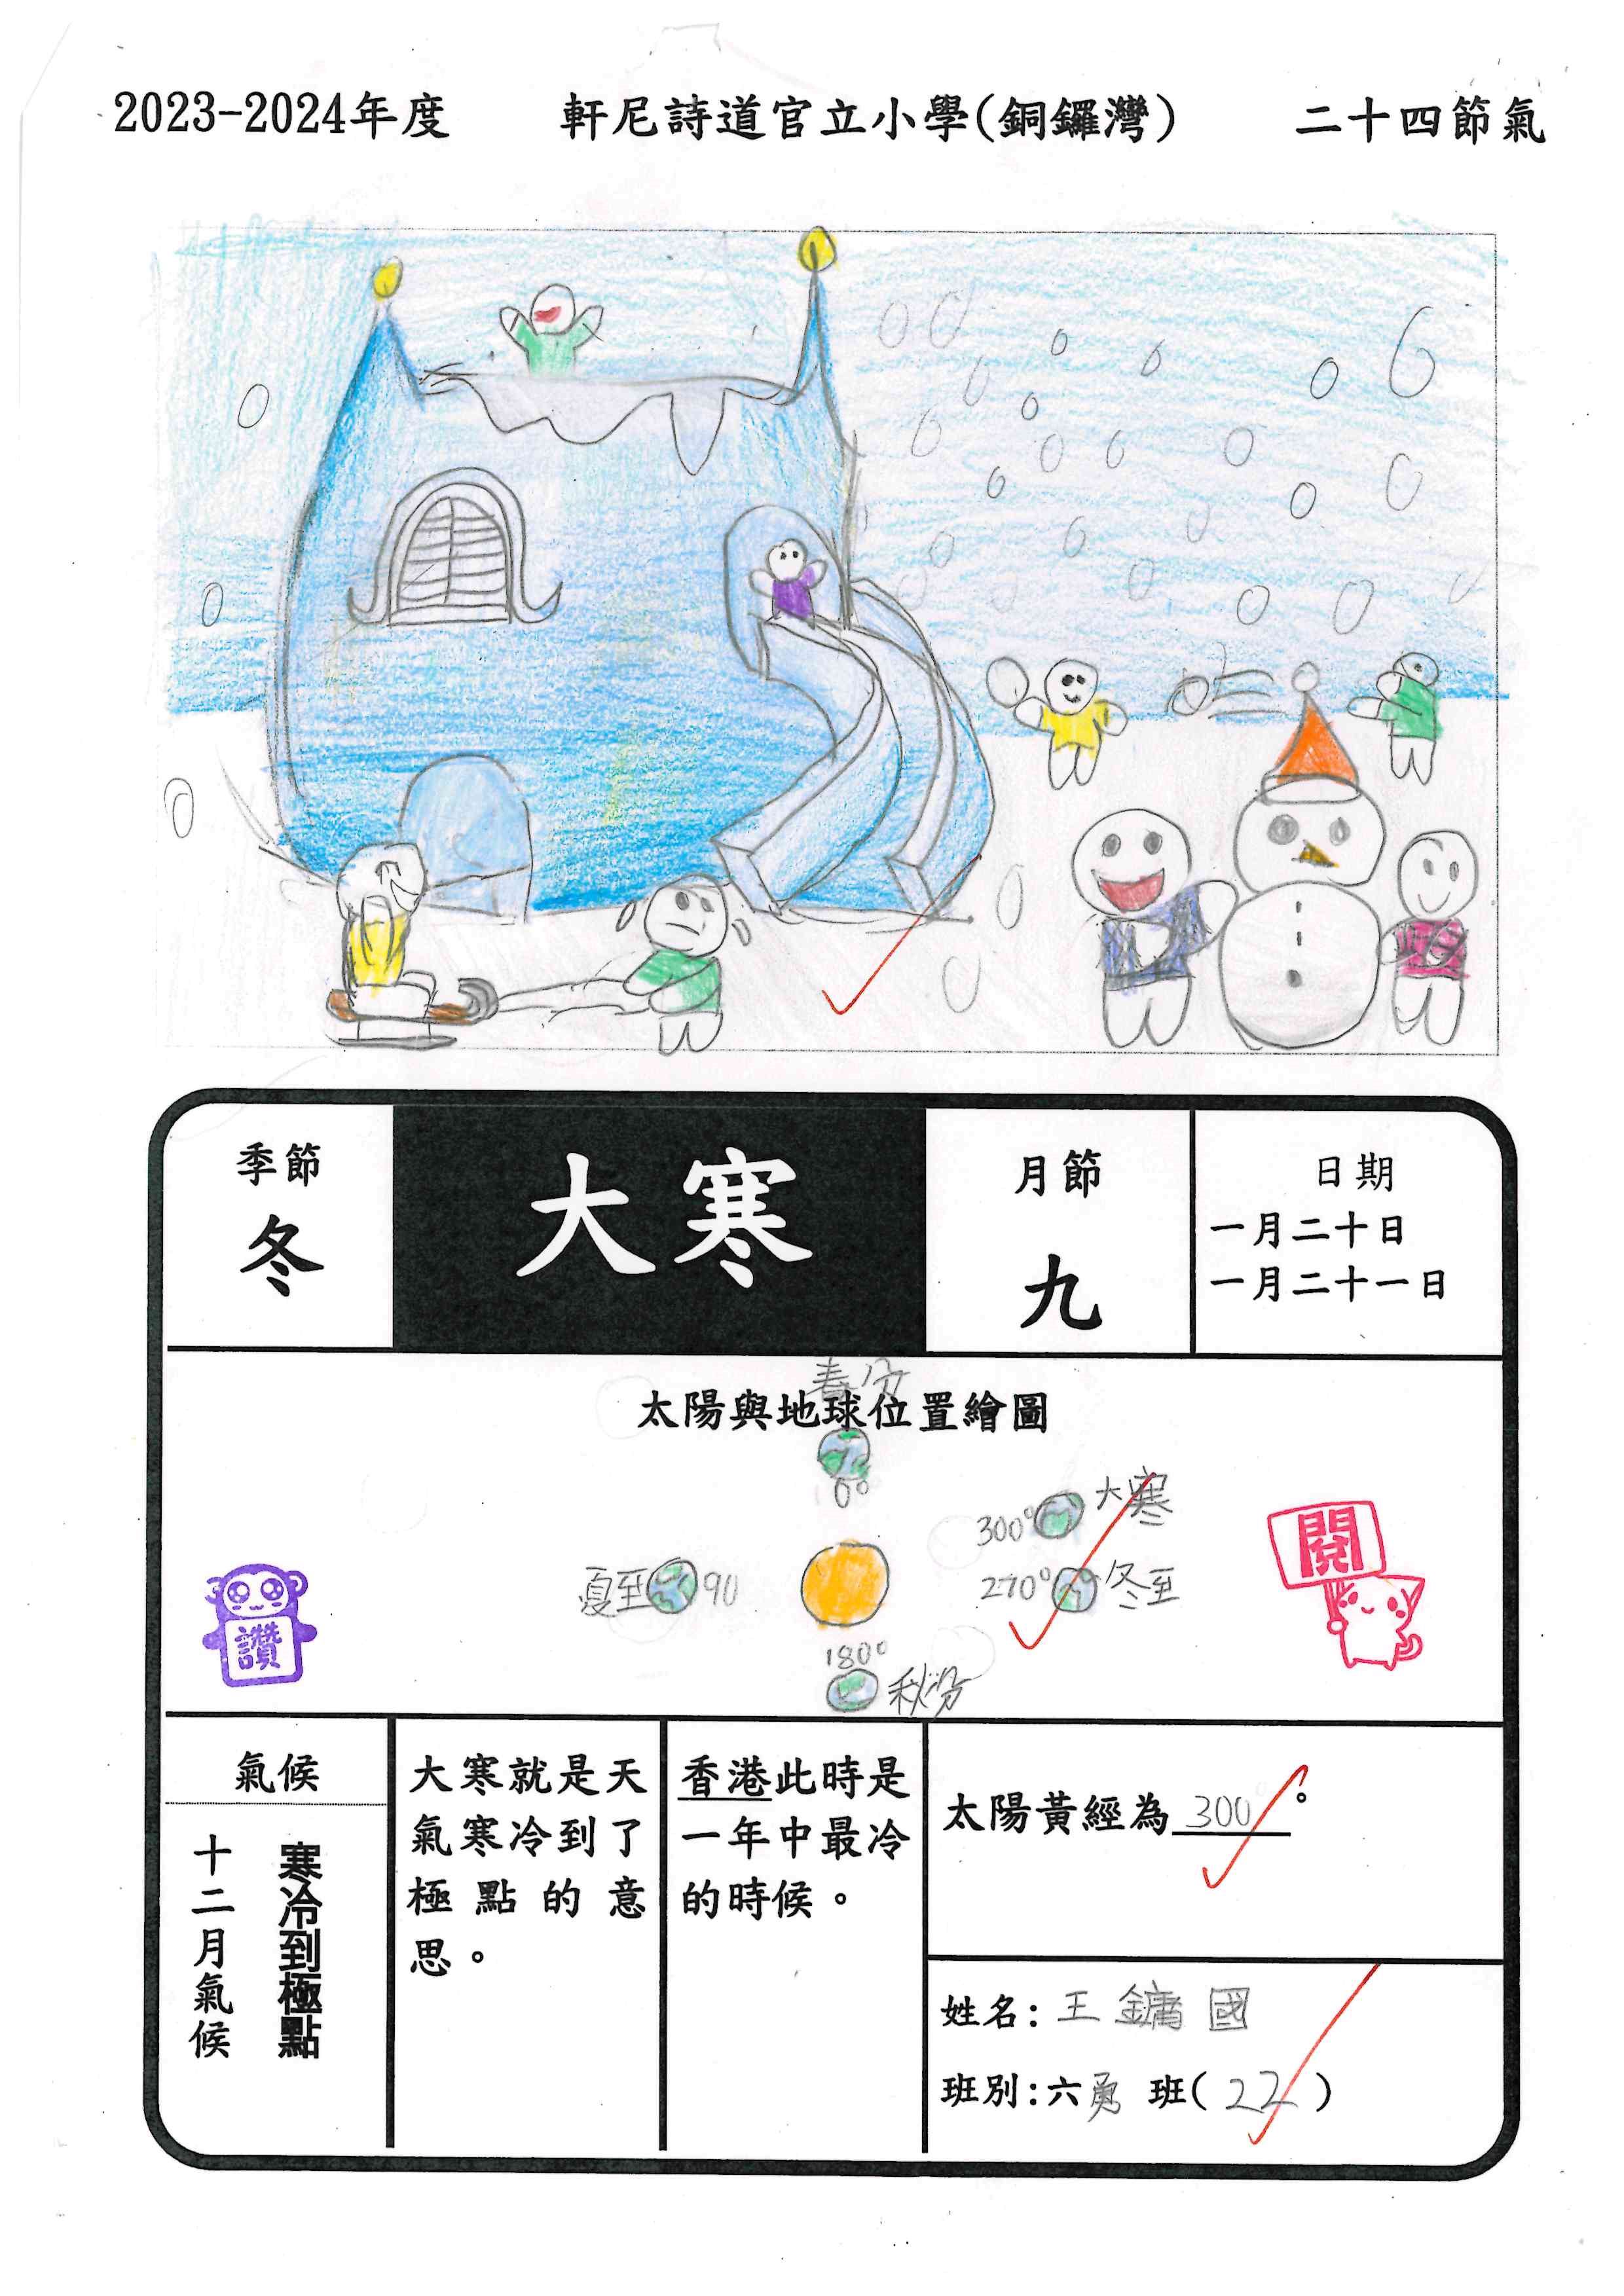 2023-2024年度 軒尼詩道官立小學(銅鑼灣) 二十四節氣
季節
冬
大寒
月節
九
日期
一月二十日
一月二十一日
春分
太陽與地球位置繪圖
0°
300° 大寒
夏至 90
270° 冬至
180°
秋分
讚
閱
氣候
十二月氣候
寒冷到極點
大寒就是天
氣寒冷到了
極點的意
思。
香港此時是
一年中最冷
的時候。
太陽黃經為 300 °
姓名: 王鏞國
班別:六勇 班( 22 )